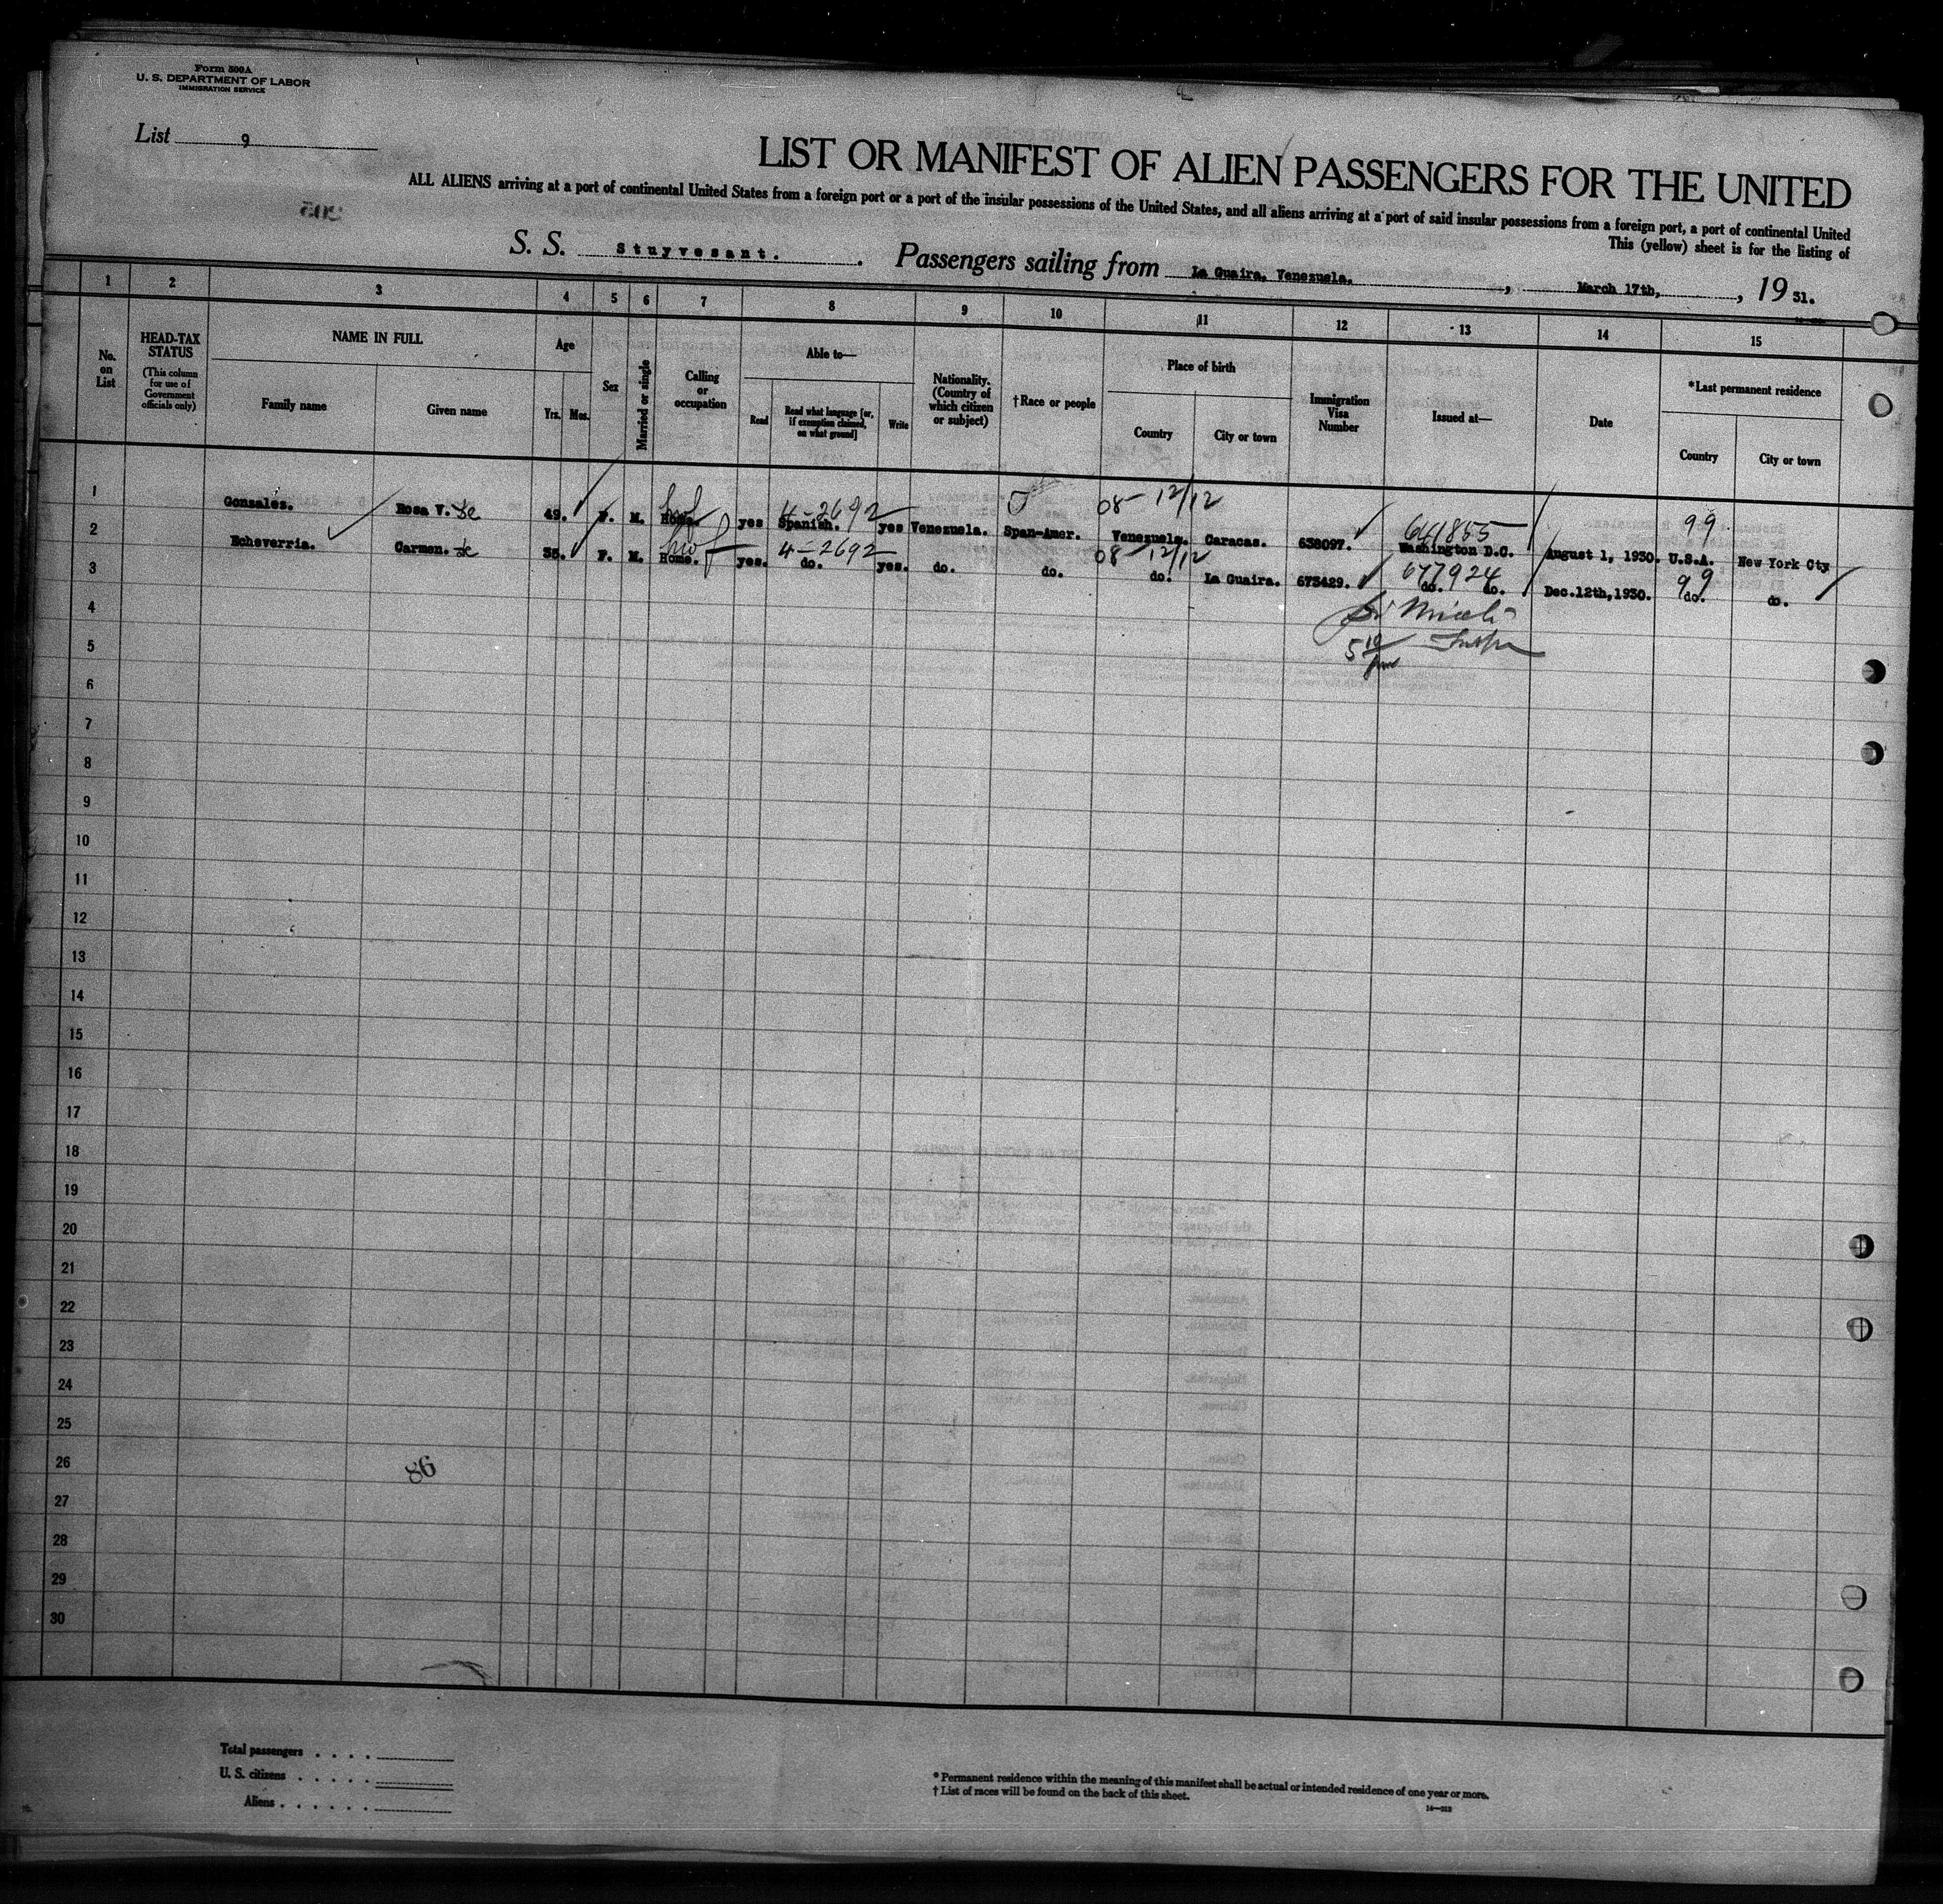 Form 500A
U. S. DEPARTMENT OF LABOR
IMMIGRATION SERVICE
List 9
LIST OR MANIFEST OF ALIEN PASSENGERS FOR THE UNITED
ALL ALIENS arriving at a port of continental United States from a foreign port or a port of the insular possessions of the United States, and all aliens arriving at a port of said insular possessions from a foreign port, a port of continental United
This (yellow) sheet is for the listing of
S. S. Stuyvesant. Passengers sailing from La Guaira, Venezuela. , March 17th, , 19 31.
1 2 3 4 5 6 7 8 9 10 11 12 13 14 15
No. on List
HEAD-TAX STATUS (This column for use of Government officials only)
NAME IN FULL
Family name Given name
Age
Yrs. Mos.
Sex
Married or single
Calling or occupation
Able to—
Read Read what language [or, if exemption claimed, on what ground] Write
Nationality. (Country of which citizen or subject)
†Race or people
Place of birth
Country City or town
Immigration Visa Number
Issued at—
Date
*Last permanent residence
Country City or town
4-2692 08-12/12 641855 99
1 Gonzales. Rosa V. de 49. F. M. Home. yes Spanish. yes Venezuela. Span-Amer. Venezuela. Caracas. 638097. Washington D.C. August 1, 1930. U.S.A. New York Cty
4-2692 08-12/12 677924 99
2 Echeverria. Carmen. de 35. F. M. Home. yes. do. yes. do. do. do. La Guaira. 673429. do. do. Dec.12th,1930. do. do.
3
4
5
6
7
8
9
10
11
12
13
14
15
16
17
18
19
20
21
22
23
24
25
26
86
27
28
29
30
Total passengers . . . .
U. S. citizens . . . . .
Aliens . . . . . .
* Permanent residence within the meaning of this manifest shall be actual or intended residence of one year or more.
† List of races will be found on the back of this sheet.